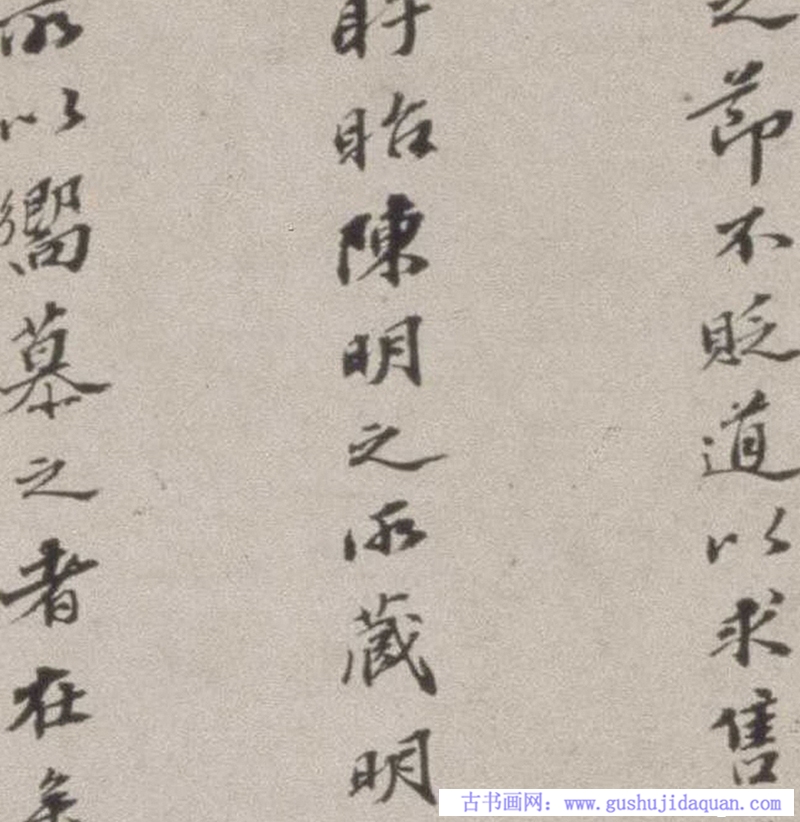 之節不貶道以求售
盱眙陳明之所藏明
所以嚮慕之者在矣
古书画网：www.gushujidaquan.com